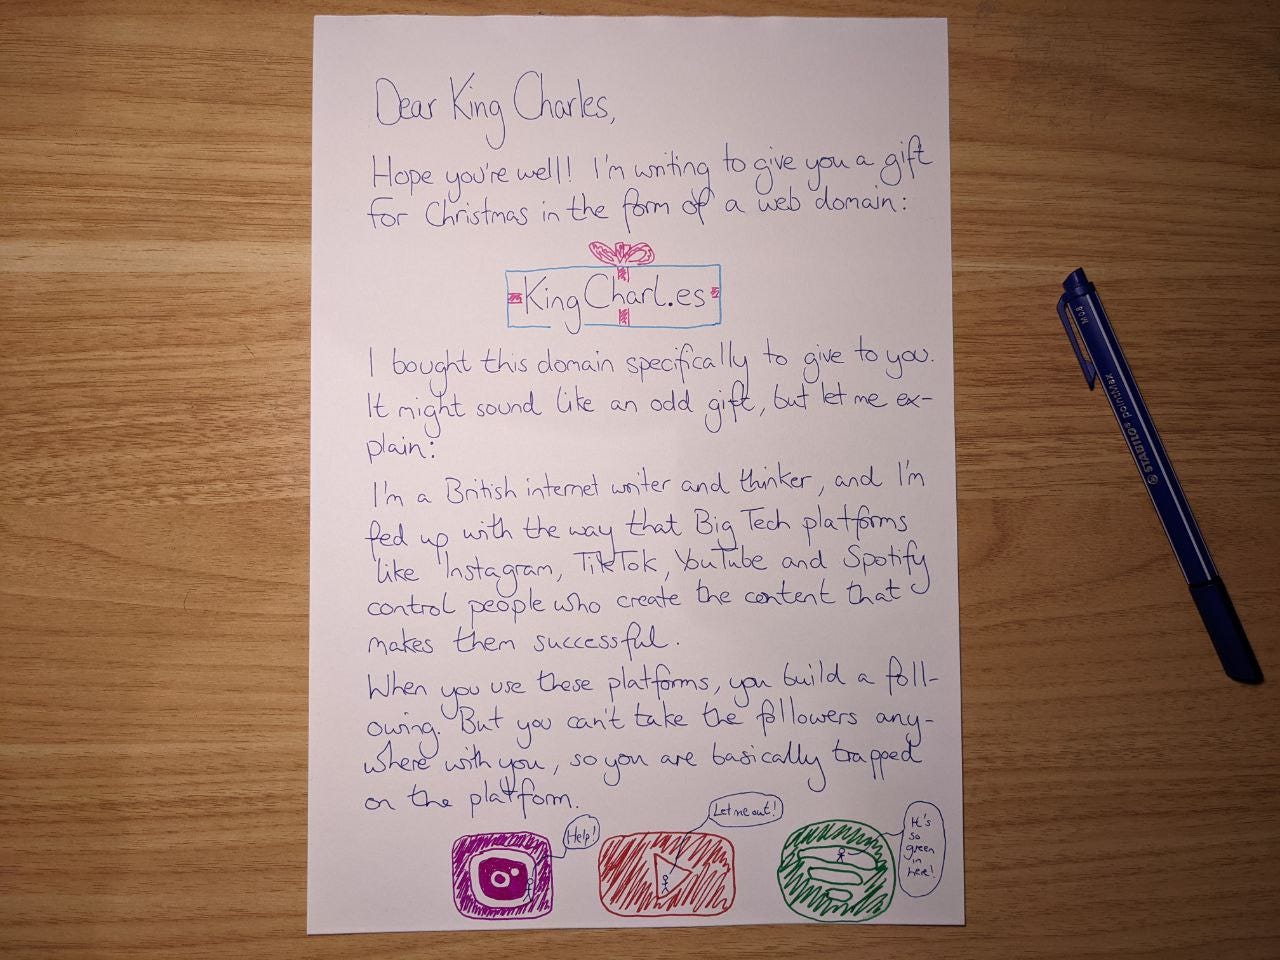 Dear King Charles,
Hope you're well! I'm writing to give you a gift
for Christmas in the form of a web domain:
KingCharl.es
I bought this domain specifically to give to you.
It might sound like an odd gift, but let me ex-
plain:
I'm a British internet writer and thinker, and I'm
fed up with the way that Big Tech platforms
like Instagram, TikTok, YouTube and Spotify
control people who create the content that
makes them successful.
When you use these platforms, you build a foll-
owing. But you can't take the followers any-
where with you, so you are basically trapped
on the platform.
Help!
Let me out!
It's
so
green
in
here!
STABILO® pointMax
M 0.8